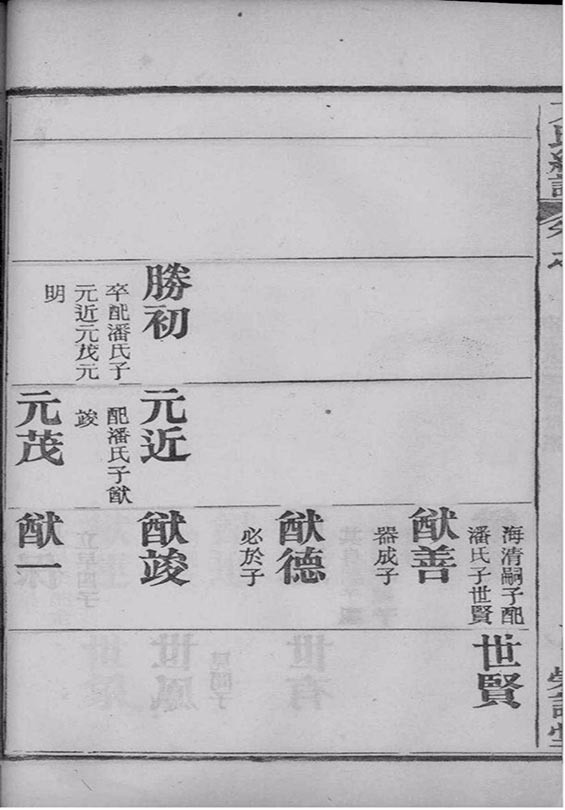 勝初
卒配潘氏子
元近元茂元
明
元近
配潘氏子猷
竣
元茂
海清嗣子配
潘氏子世賢
猷善
器成子
猷德
必於子
猷竣
猷一
世賢